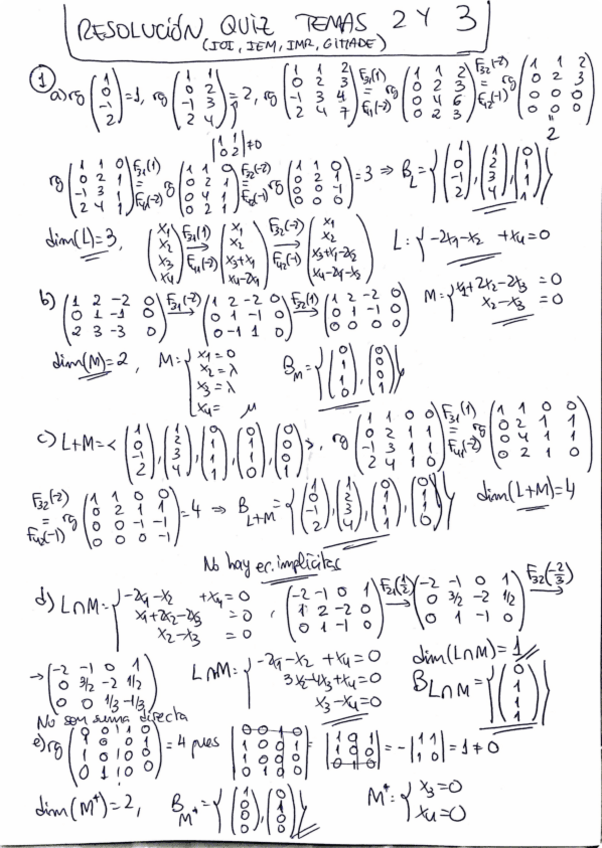 RESOLUCIÓN QUIZ TEMAS 2 Y 3
(IOI, IEM, IMR, GITIADE)
① a) rg (1 0 -1 2) = 1, rg (1 1 / 0 2 / -1 3 / 2 4) = 2, rg (1 1 2 / 0 2 3 / -1 3 4 / 2 4 7) F31(1) = F41(-2) rg (1 1 2 / 0 2 3 / 0 4 6 / 0 2 3) F32(-2) = F42(-1) rg (1 1 2 / 0 2 3 / 0 0 0 / 0 0 0) = 2
|1 1 / 0 2| ≠ 0
rg (1 1 0 / 0 2 1 / -1 3 1 / 2 4 1) F31(1) = F41(-2) rg (1 1 0 / 0 2 1 / 0 4 1 / 0 2 1) F32(-2) = F42(-1) rg (1 1 0 / 0 2 1 / 0 0 -1 / 0 0 0) = 3 ⇒ B_L = {(1 0 -1 2), (1 2 3 4), (0 1 1 1)}
dim(L)=3, (x1 x2 x3 x4) F31(1) → F41(-2) (x1 x2 x3+x1 x4-2x1) F32(-2) → F42(-1) (x1 x2 x3+x1-2x2 x4-2x1-x2) L: { -2x1-x2 +x4=0
b) (1 2 -2 0 / 0 1 -1 0 / 2 3 -3 0) F31(-2) → (1 2 -2 0 / 0 1 -1 0 / 0 -1 1 0) F32(1) → (1 2 -2 0 / 0 1 -1 0 / 0 0 0 0) M: { x1+2x2-2x3 = 0 / x2-x3 = 0
dim(M)=2, M: { x1=0 / x2=λ / x3=λ / x4= μ B_M = {(0 1 1 0), (0 0 0 1)}
c) L+M = <(1 0 -1 2), (1 2 3 4), (0 1 1 1), (0 1 1 0), (0 0 0 1)>, rg (1 1 0 0 / 0 2 1 1 / -1 3 1 1 / 2 4 1 0) F31(1) = F41(-2) rg (1 1 0 0 / 0 2 1 1 / 0 4 1 1 / 0 2 1 0)
F32(-2) = F42(-1) rg (1 1 0 0 / 0 2 1 1 / 0 0 -1 -1 / 0 0 0 -1) = 4 ⇒ B_L+M = {(1 0 -1 2), (1 2 3 4), (0 1 1 1), (0 1 1 0)} dim(L+M)=4
No hay ec. implícitas
d) L∩M = { -2x1-x2 +x4=0 / x1+2x2-2x3 =0 / x2-x3 =0, (-2 -1 0 1 / 1 2 -2 0 / 0 1 -1 0) F21(1/2) → (-2 -1 0 1 / 0 3/2 -2 1/2 / 0 1 -1 0) F32(-2/3) →
→ (-2 -1 0 1 / 0 3/2 -2 1/2 / 0 0 1/3 -1/3) L∩M = { -2x1-x2 +x4=0 / 3x2-4x3+x4=0 / x3-x4=0 dim(L∩M)=1 B_L∩M = {(0 1 1 1)}
No son suma directa
e) rg (0 0 1 0 / 1 0 0 1 / 1 0 1 0 0 / 0 1 0 0) = 4 pues |0 0 1 0 / 1 0 0 1 / 1 0 0 0| = |1 0 1 / 1 0 0| = -|1 1 / 1 0| = 1 ≠ 0
dim(M*)=2, B_M* = {(1 0 0 0), (0 1 0 0)} M*: { x3=0 / x4=0